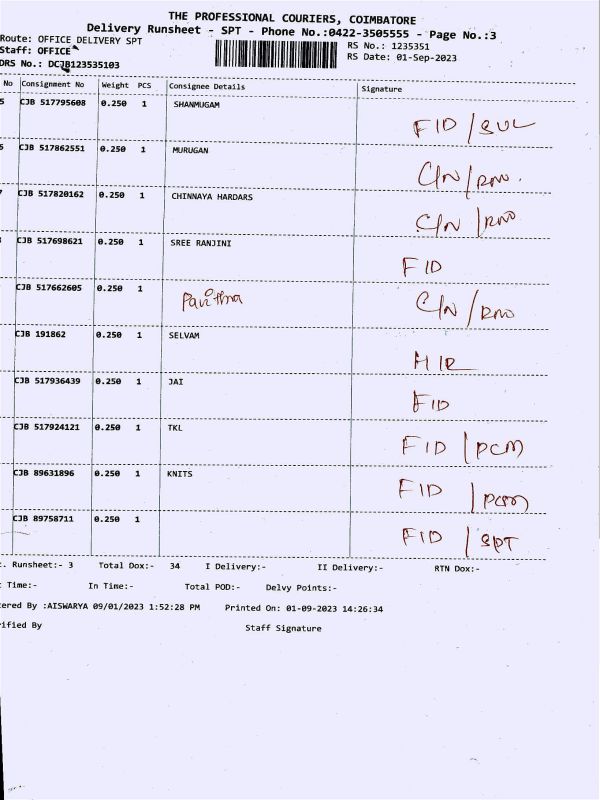 THE PROFESSIONAL COURIERS, COIMBATORE
Delivery Runsheet - SPT - Phone No.:0422-3505555 - Page No.:3
Route: OFFICE DELIVERY SPT
RS No.: 1235351
Staff: OFFICE
RS Date: 01-Sep-2023
DRS No.: DCJB123535103
No Consignment No Weight PCS Consignee Details Signature
5 CJB 517795608 0.250 1 SHANMUGAM
FID / SUL
6 CJB 517862551 0.250 1 MURUGAN
C/N / RNO.
7 CJB 517820162 0.250 1 CHINNAYA HARDARS
C/N / RNO
CJB 517698621 0.250 1 SREE RANJINI
FID
CJB 517662605 0.250 1 Pavithra
C/N / RNO
CJB 191862 0.250 1 SELVAM
HIR
CJB 517936439 0.250 1 JAI
FID
CJB 517924121 0.250 1 TKL
FID / PCM
CJB 89631896 0.250 1 KNITS
FID / PCM
CJB 89758711 0.250 1
FID / SPT
. Runsheet:- 3 Total Dox:- 34 I Delivery:- II Delivery:- RTN Dox:-
Time:- In Time:- Total POD:- Delvy Points:-
ered By :AISWARYA 09/01/2023 1:52:28 PM Printed On: 01-09-2023 14:26:34
ified By Staff Signature